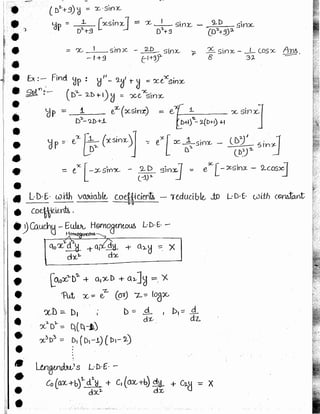 (D²+9)y = x sinx
yp = 1/(D²+9) [x sinx] = x 1/(D²+9) sinx - 2D/(D²+9)² sinx
= x 1/(-1+9) sinx - 2D/(-1+9)² sinx ⇒ x/8 sinx - 1/32 cosx Ans.
Ex:- Find yp : y'' - 2y' + y = xeˣ sinx
Solⁿ:- (D²-2D+1)y = xeˣ sinx
yp = 1/(D²-2D+1) eˣ(x sinx) = eˣ [1/((D+1)²-2(D+1)+1) x sinx]
yp = eˣ [1/D² (x sinx)] = eˣ [x 1/D² sinx - (D²)'/(D²)² sinx]
= eˣ [-x sinx - 2D/(-1)² sinx] = eˣ [-x sinx - 2cosx]
L·D·E· with variable coefficients - reducible to L·D·E· with constant
Coefficients.
1) Cauchy - Euler Homogeneous L·D·E·-
Homogeneous
a₀x² d²y/dx² + a₁x dy/dx + a₂y = X
[a₀x²D² + a₁xD + a₂]y = X
Put x = eᶻ (or) z = logx
xD = D₁ ; D = d/dx , D₁ = d/dz
x²D² = D₁(D₁-1)
x³D³ = D₁(D₁-1)(D₁-2)
Legendre's L·D·E·-
C₀(ax+b)² d²y/dx² + C₁(ax+b) dy/dx + C₂y = X